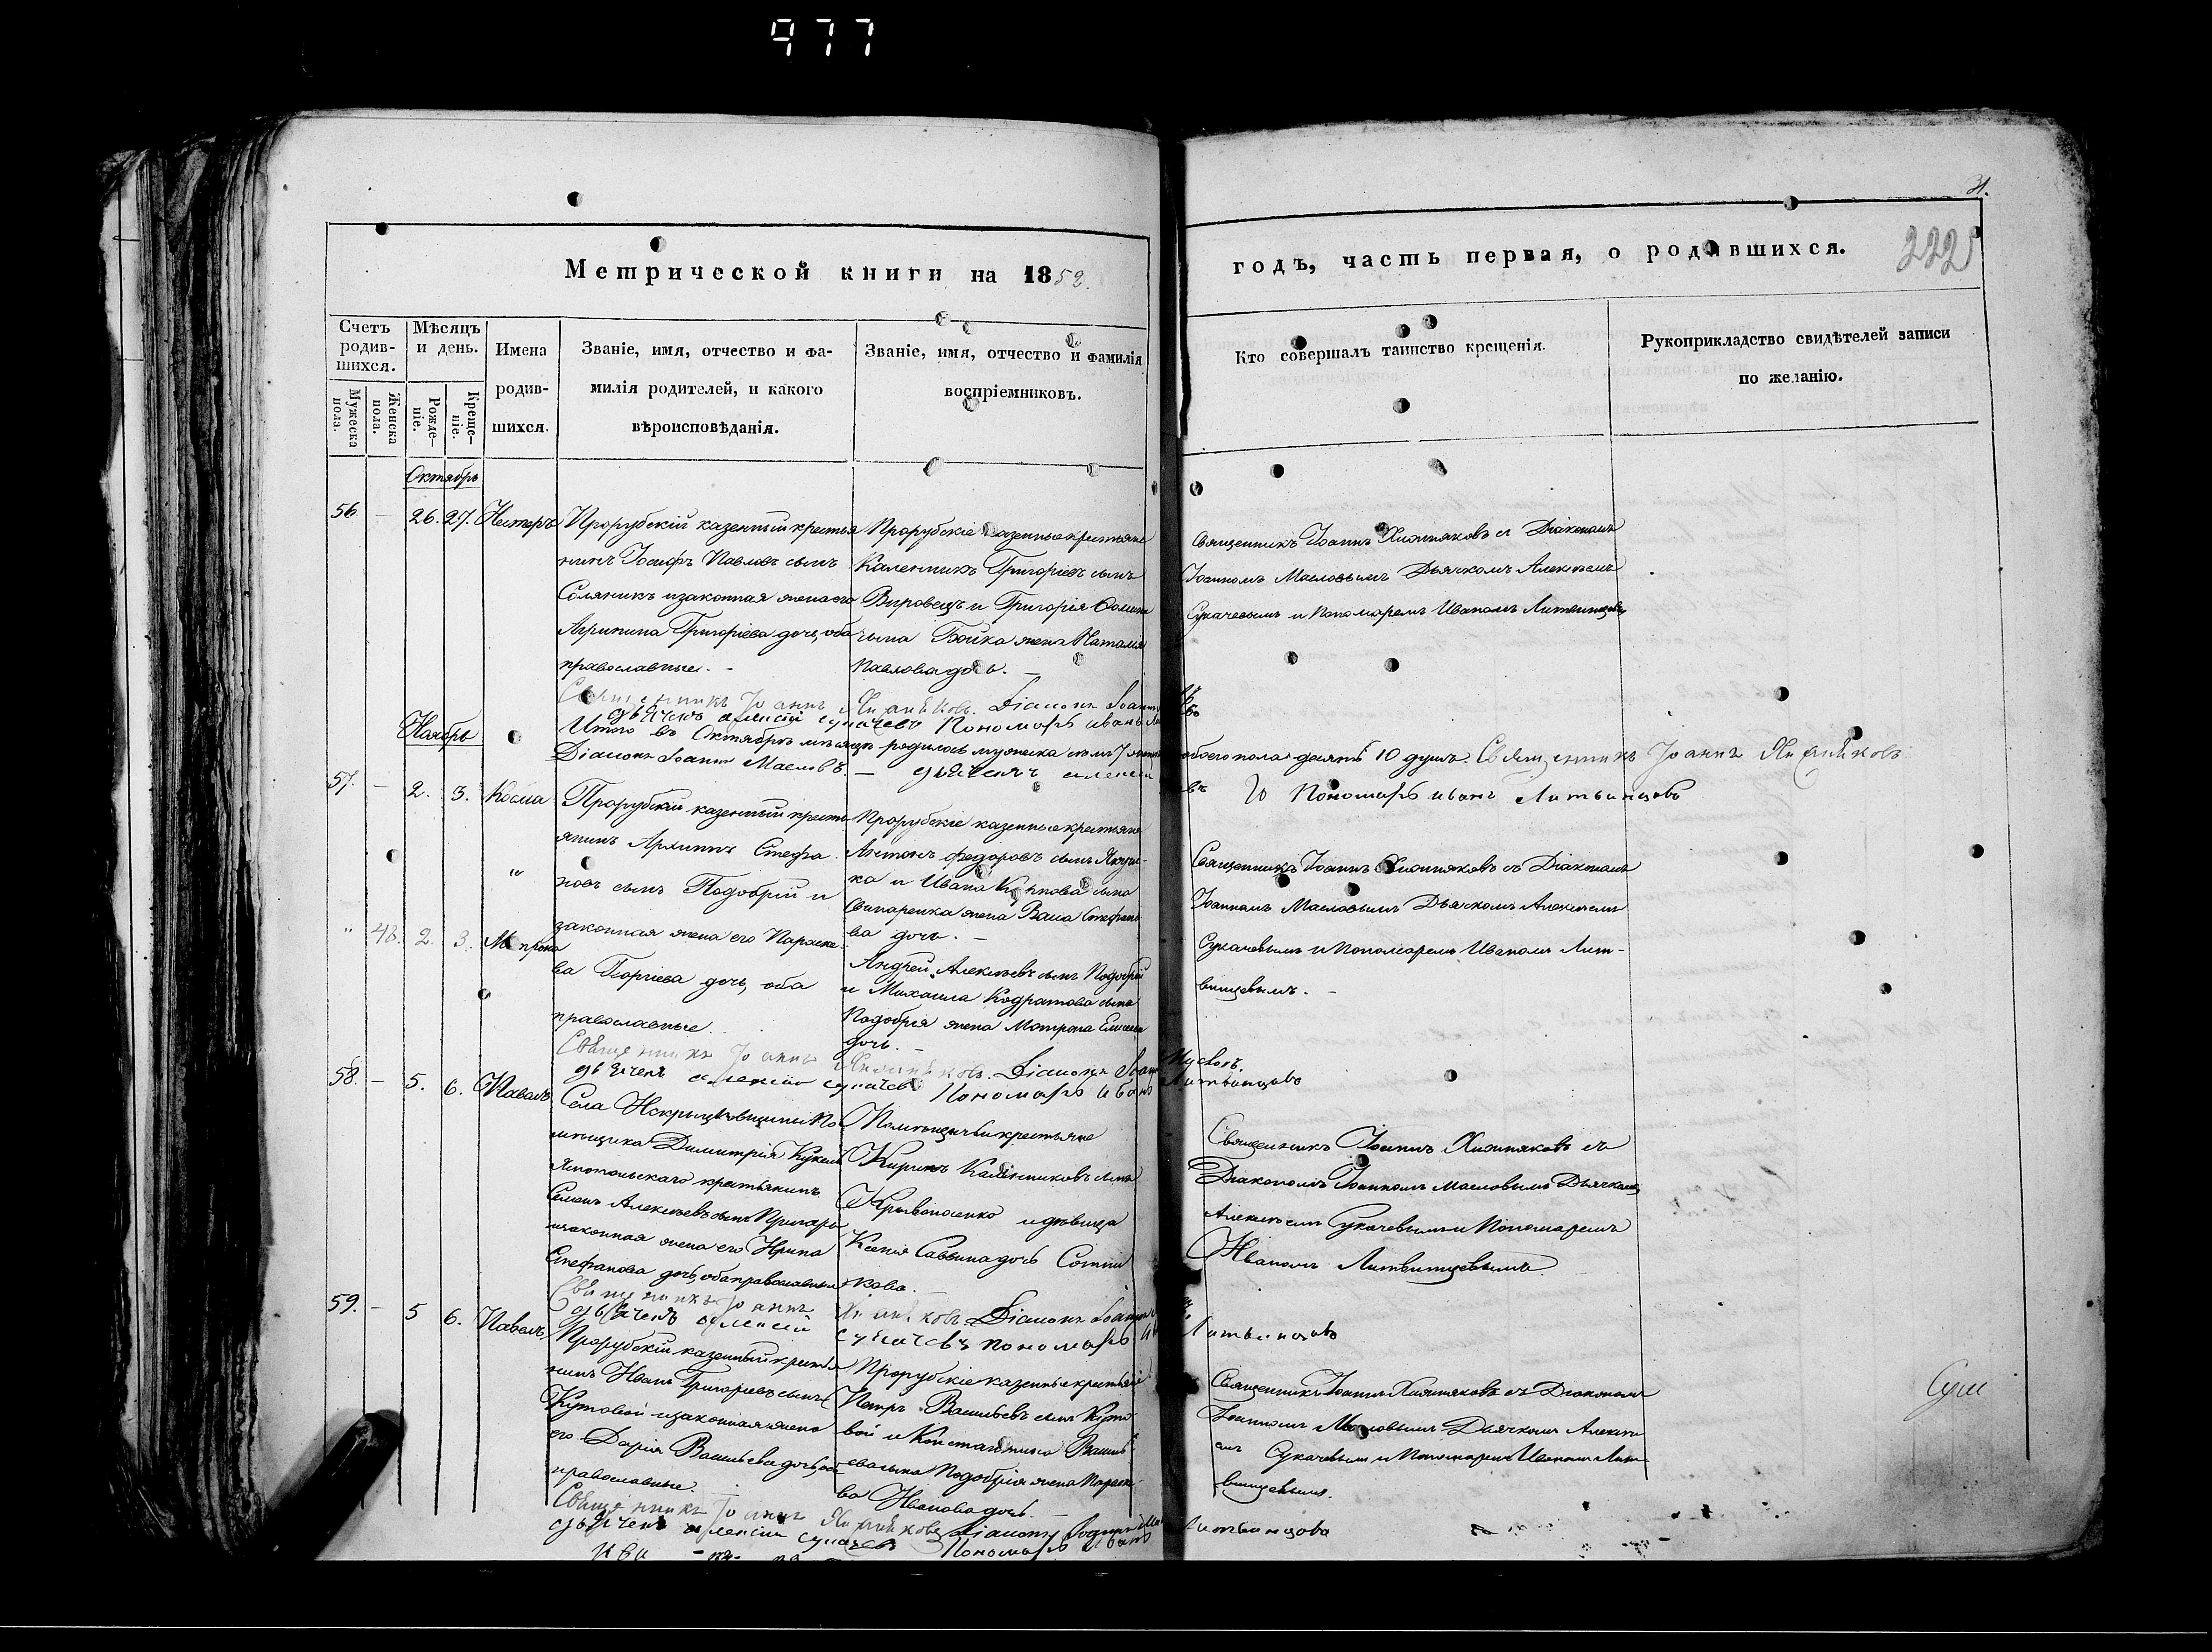 977
31.
222
Метрической книги на 1852.
годъ, часть первая, о родившихся.
Счетъ родив-шихся.
Мужеска пола.
Женска пола.
Мѣсяцъ и день.
Рожде-ніе.
Креще-ніе.
Имена родив-шихся.
Званіе, имя, отчество и фа-
милія родителей, и какого
вѣроисповѣданія.
Званіе, имя, отчество и фамилія
воспріемниковъ.
Кто совершалъ таинство крещенія.
Рукоприкладство свидѣтелей записи
по желанію.
Октябрь
56 – 26. 27. Несторъ
Прорубскій казенный крестья
нинъ Іосифъ Павловъ сынъ
Соляникъ и законная жена его
Агрипина Григоріева дочь, оба
православные. –
Прорубскіе казенные крестьяне
Каленникъ Григоріевъ сынъ
Вировецъ и Григорія Фомина
сына Бойка жена Наталія
Павлова дочь. –
Священникъ Іоаннъ Хижняковъ съ Діакономъ
Іоанномъ Масловымъ Дьячкомъ Алексѣемъ
Сукачевымъ и Пономаремъ Иваномъ Литвинцевы
Священникъ Іоаннъ Хижняковъ. Діаконъ Іоаннъ
дьячекъ алексій сукачевъ Пономаръ иванъ
Ноябрь
Итого въ Октябрѣ мѣсяцѣ родилось мужеска семъ 7
обоего пола десять 10 душъ. Священникъ Іоаннъ Хижняковъ
Діаконъ Іоаннъ Масловъ. – дьячекъ алексій
Пономаръ иванъ Литвинцовъ
57. – 2. 3. Косма
" 48. 2. 3. Матрона
Прорубскій казенный кресть
янинъ Архиппъ Стефа
новъ сынъ Подобрій и
законная жена его Параске
ва Георгіева дочь, оба
православные.
Прорубскіе казенные крестьяне
Антонъ Федоровъ сынъ
ка и Ивана сына
жена Васса Стефано
ва дочь. –
Андрей Алексѣевъ сынъ Подобрій
и Михаила Кодратова сына
Подобрія жена Матрона
дочь. –
Священникъ Іоаннъ Хижняковъ съ Діакономъ
Іоанномъ Масловымъ Дьячкомъ Алексѣемъ
Сукачевымъ и Пономаремъ Иваномъ Лит-
винцевымъ. –
Священникъ Іоаннъ Хижняковъ. Діаконъ Іоаннъ
дьячекъ алексій сукачевъ Пономаръ Иванъ Литвинцовъ
58. – 5. 6. Павелъ
Села По
мѣщика Димитрія
Ямпольскаго крестьянинъ
Семенъ Алексѣевъ сынъ
и законная жена его Ирина
Стефанова дочь, оба православные
Помѣщичьи крестьяне
Киринъ Калѣниковъ сынъ
Кривоносенко и дѣвица
Ксенія Саввина дочь Сотни
кова.
Священникъ Іоаннъ Хижняковъ съ
Діакономъ Іоанномъ Масловымъ Дьячкомъ
Алексѣемъ Сукачевымъ и Пономаремъ
Иваномъ Литвинцевымъ.
Священникъ Іоаннъ Хижняковъ. Діаконъ Іоаннъ
дьячекъ алексій сукачевъ пономаръ Литвинцовъ
59. – 5 6. Павелъ
Прорубскій казенный крестья
нинъ Иванъ Григоріевъ сынъ
Кутовой и законная жена
его Дарія Васильева дочь, оба
православные.
Прорубскіе казенные крестьяне
Петръ Васильевъ сынъ Куто
вой и Константина Василь
ева сына Подобрія жена Параске
ва Иванова дочь. –
Священникъ Іоаннъ Хижняковъ съ Діакономъ
Іоанномъ Масловымъ Дьячкомъ Алексѣ
емъ Сукачевымъ и Пономаремъ Иваномъ Лит
винцевымъ.
Священникъ Іоаннъ Хижняковъ Діаконъ Іоаннъ
дьячекъ алексій сукачевъ Пономаръ Иванъ Литвинцовъ